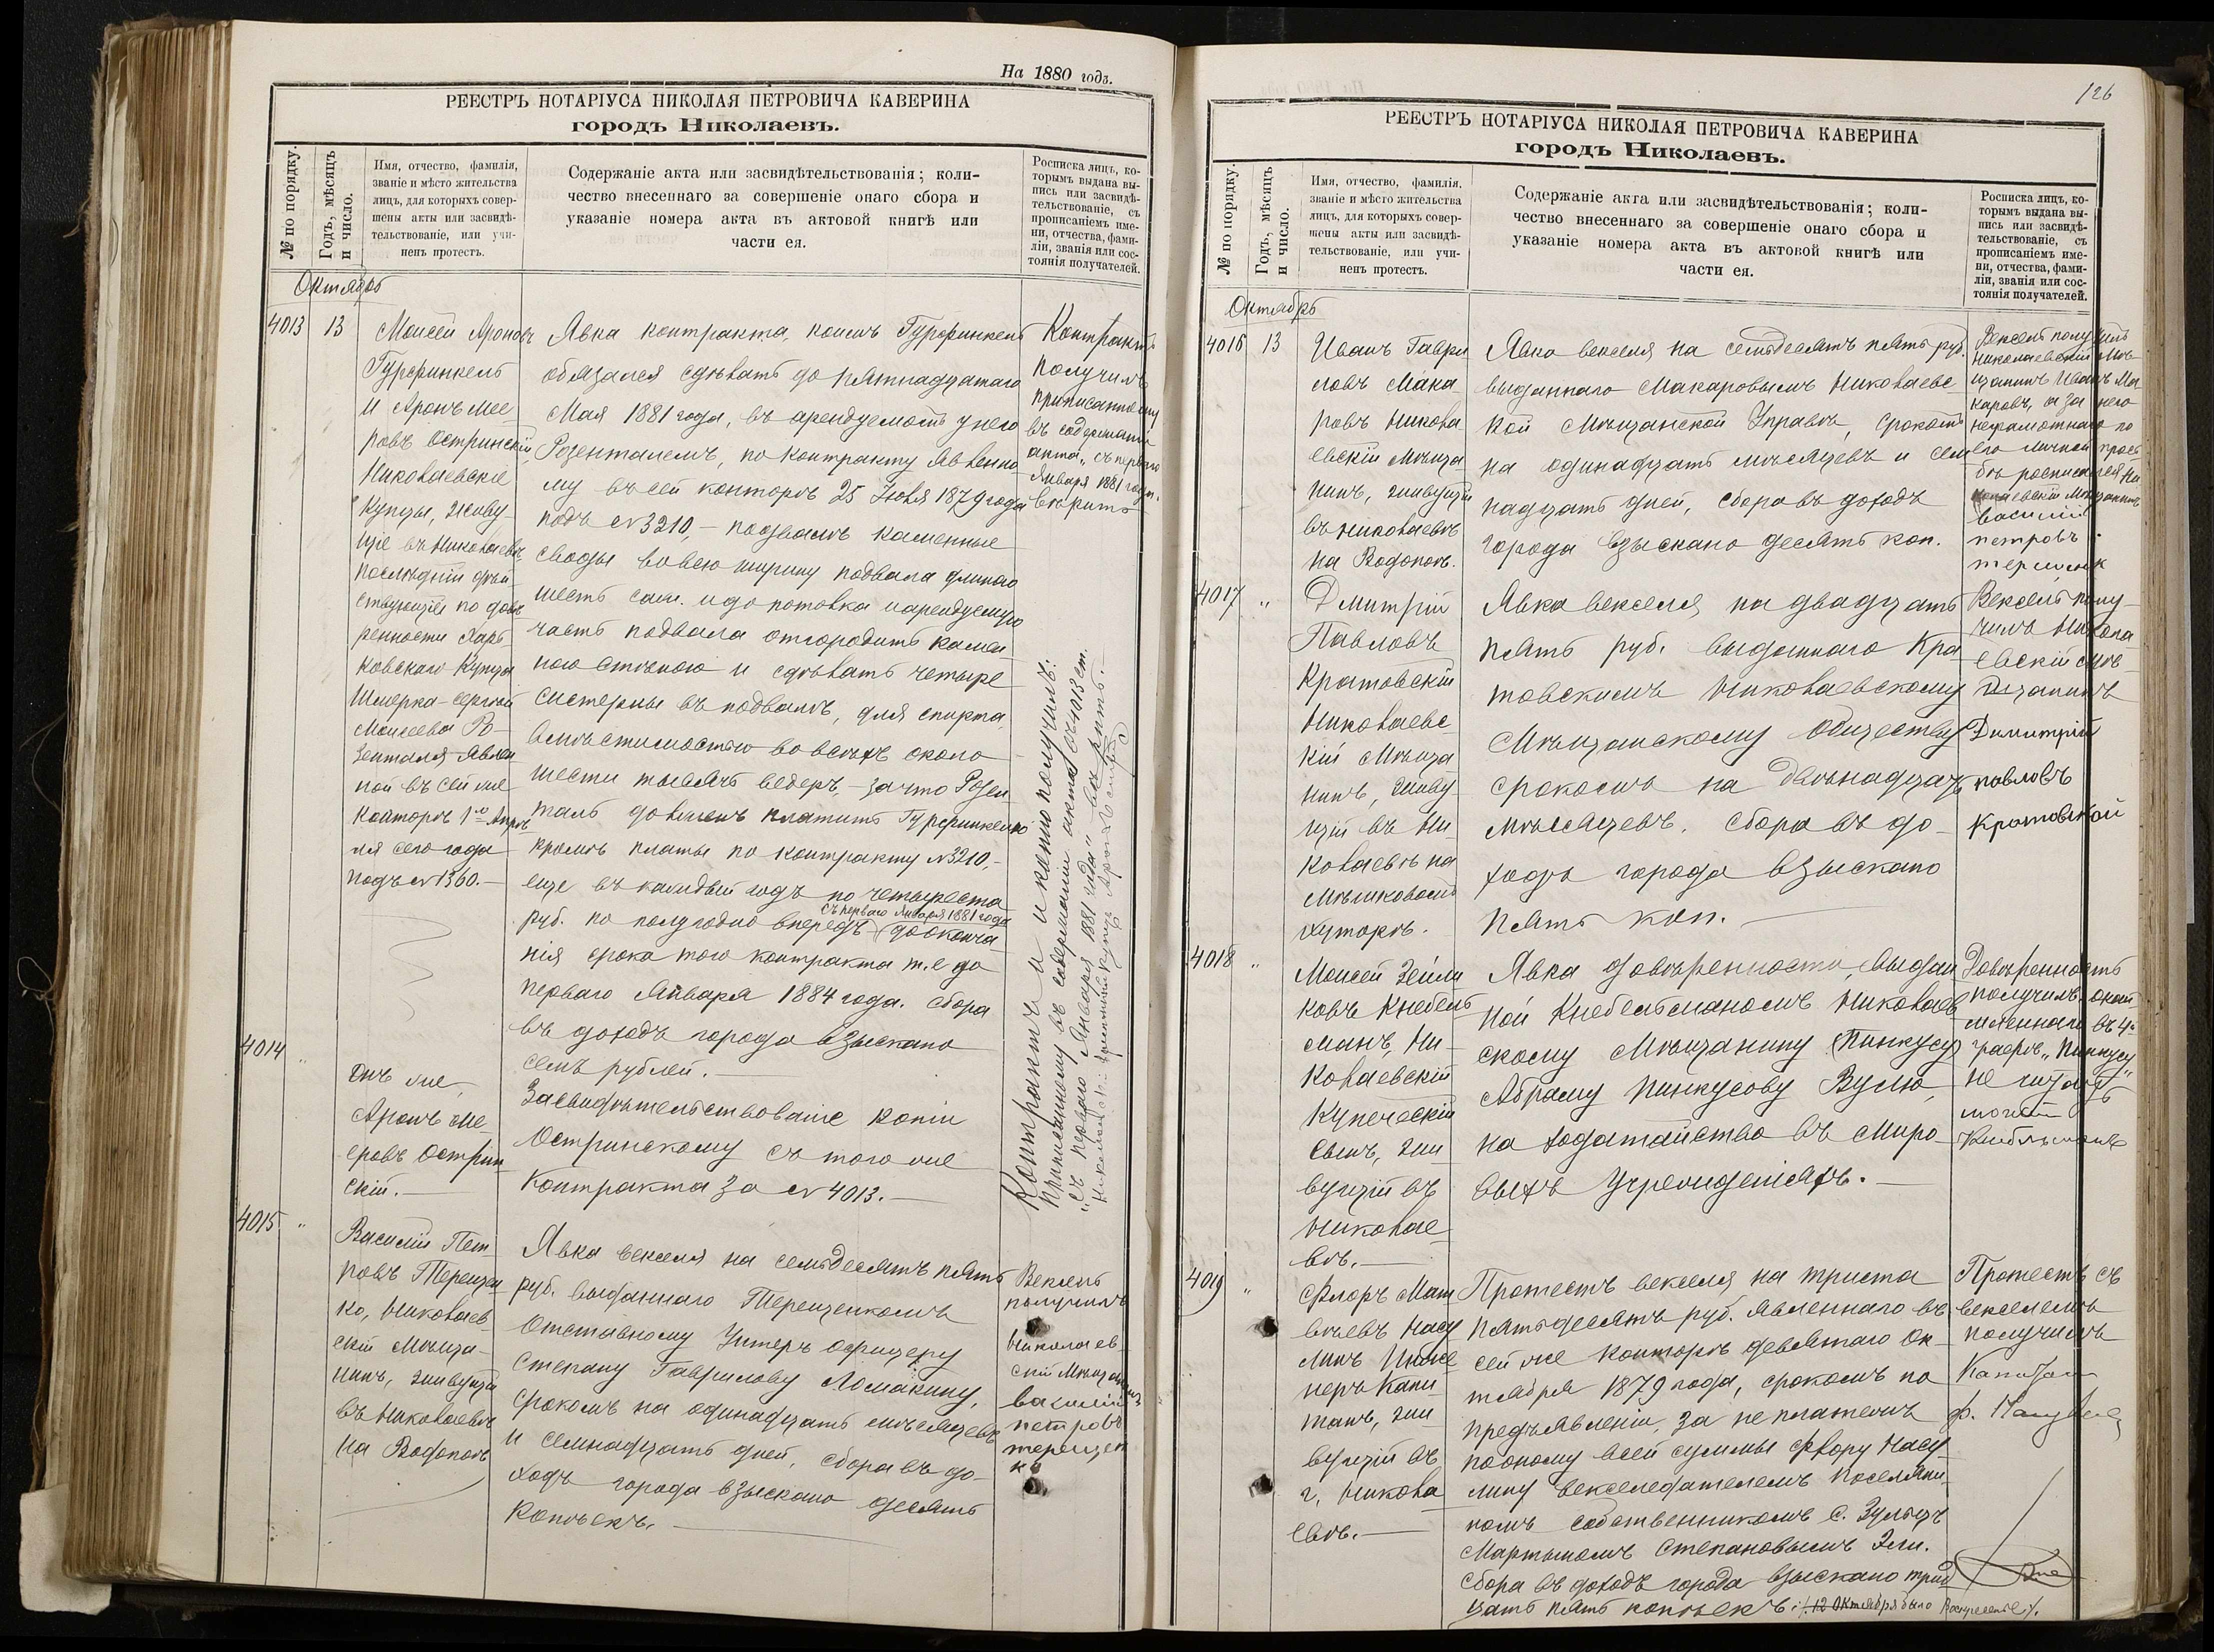 На 1880 годъ.
РЕЕСТРЪ НОТАРІУСА НИКОЛАЯ ПЕТРОВИЧА КАВЕРИНА
городъ Николаевъ.
№ по порядку.
Годъ, мѣсяцъ
и число.
Имя, отчество, фамилія,
званіе и мѣсто жительства
лицъ, для которыхъ совер-
шены акты или засвидѣ-
тельствованіе, или учи-
ненъ протестъ.
Содержаніе акта или засвидѣтельствованія; коли-
чество внесеннаго за совершеніе онаго сбора и
указаніе номера акта въ актовой книгѣ или
части ея.
Росписка лицъ, ко-
торымъ выдана вы-
пись или засвидѣ-
тельствованіе, съ
прописаніемъ име-
ни, отчества, фами-
ліи, званія или сос-
тоянія получателей.
Октябрь
4013
13
Моисей Ароновъ
Гурфинкель
и Аронъ Мее
ровъ Остринскій,
Николаевскіе
Купцы, живу-
щіе въ Николаевѣ
послѣдній дѣй
ствующій по довѣ
ренности Харь
ковскаго Купца
Шмерка-Сергѣй
Моисеева Ро-
зенталя явлен
ной въ сей же
конторѣ 1го Апрѣ
ля сего года
подъ №1360.-
Явка контракта, коимъ Гурфинкель
обязался сдѣлать до пятнадцатаго
Мая 1881 года, въ арендуемомъ у него
Розенталемъ, по контракту явленно
му въ сей конторѣ 25 Іюля 1879 года
подъ №3210,- подвалѣ каменные
своды во всю ширину подвала длиною
шесть саж. и до потолка и арендуемую
часть подвала отгородить камен
ною стѣною и сдѣлать четыре
систерны въ подвалѣ, для спирта,
вмѣстимостью во всѣхъ около
шести тысячъ ведеръ,- за что Розен
таль долженъ платить Гурфинкелю
кромѣ платы по контракту №3210,-
еще въ каждый годъ по четыреста
съ перваго Января 1881 года
руб. по полугодно впередъ до оконча
нія срока того контракта т.е до
перваго Января 1884 года. Сбора
въ доходъ города взыскано
семь рублей.
Контрактъ
получилъ
приписанному
въ содержаніи
акта „съ перваго
Января 1881 года"
вѣрить
Контрактъ и копію получилъ:
приписанному въ содержаніи акта №4013 ст.
„съ перваго Января 1881 года" вѣрить.
4014
"
Онъ же,
Аронъ Ме-
еровъ Острин
скій.
Засвидѣтельствованіе копіи
Остринскому съ того же
Контракта за №4013.
4015
"
Василій Пет-
ровъ Терещен
ко, Николаев-
скій Мѣща-
нинъ, живущій
въ Николаевѣ
на Водопоѣ
Явка векселя на семьдесятъ пять
руб. выданнаго Терещенкомъ
Отставному Унтеръ Офицеру
Степану Гаврилову Ломакину,
срокомъ на одинадцать мѣсяцевъ
и семнадцать дней, сбора въ до-
ходъ города взыскано десять
копѣекъ.
Вексель
получилъ
николаев
скій Мѣщанинъ
василій
петровъ
терещен
ко
126
РЕЕСТРЪ НОТАРІУСА НИКОЛАЯ ПЕТРОВИЧА КАВЕРИНА
городъ Николаевъ.
№ по порядку.
Годъ, мѣсяцъ
и число.
Имя, отчество, фамилія,
званіе и мѣсто жительства
лицъ, для которыхъ совер-
шены акты или засвидѣ-
тельствованіе, или учи-
ненъ протестъ.
Содержаніе акта или засвидѣтельствованія; коли-
чество внесеннаго за совершеніе онаго сбора и
указаніе номера акта въ актовой книгѣ или
части ея.
Росписка лицъ, ко-
торымъ выдана вы-
пись или засвидѣ-
тельствованіе, съ
прописаніемъ име-
ни, отчества, фами-
ліи, званія или сос-
тоянія получателей.
Октябрь
4016
13
Иванъ Гаври
ловъ Мака
ровъ Никола
евскій Мѣща
нинъ, живущій
въ Николаевѣ
на Водопоѣ.
Явка векселя на семьдесятъ пять руб.
выданнаго Макаровымъ Николаевс
кой Мѣщанской Управѣ, срокомъ
на одинадцать мѣсяцевъ и сем
надцать дней, сбора въ доходъ
города взыскано десять коп.
Вексель получилъ
Николаевскій мѣ
щанинъ Иванъ Ма
каровъ, а за него
неграмотнаго по
его личной прось
бѣ росписался Ни
колаевскій Мѣщанинъ
василій
петровъ
4017
"
Дмитрій
Павловъ
Кратовскій
Николаевс
кій Мѣща
нинъ, живу
щій въ Ни
колаевѣ на
Мѣшковомъ
хуторѣ.
Явка векселя, на двадцать
пять руб. выданнаго Кра-
товскимъ Николаевскому
Мѣщанскому Обществу
срокомъ на двѣнадцать
мѣсяцевъ, сбора въ до-
ходъ города взыскано
пять коп.
Вексель полу-
чилъ Никола
евскій мѣ
щанинъ
Димитрій
павловъ
Кратовской
4018
"
Моисей Зейли
ковъ Кнебель
манъ, Ни-
колаевскій
Купеческій
сынъ, жи
вущій въ
Николае-
вѣ.
Явка довѣренности, выдан
ной Кнебельманомъ Николаев
скому Мѣщанину (Пинкусу)
Абраму Пинкусову Вулю,
на ходатайство въ Миро-
выхъ Учрежденіяхъ.
Довѣренность
получилъ,
въ 4й
графѣ „Пинкусу"
не читать
4019
"
Флоръ Мат
вѣевъ Насу
линъ Инже
неръ Капи
танъ, жи
вущій въ
г. Никола
евѣ.
Протестъ векселя на триста
пятьдесятъ руб. явленнаго въ
сей же конторѣ девятаго Ок
тября 1879 года, срокомъ по
предъявленію, за не платежъ
по оному всей суммы Флору Насу
лину векселедателемъ поселяни
номъ собственникомъ С. Зульцъ
Мартыномъ Степановымъ Эли.
Сбора въ доходъ города взыскано трид
цать пять копѣекъ ./.12 Октября было Воскресенье/.
Протестъ съ
векселемъ
получилъ
Капитан